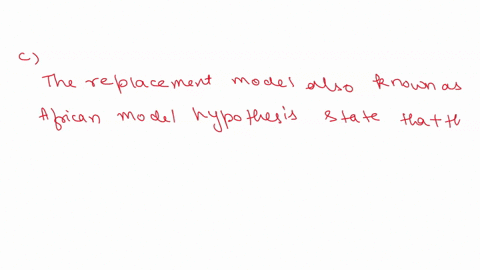 c)
The replacement model also known as
African model hypothesis state that th